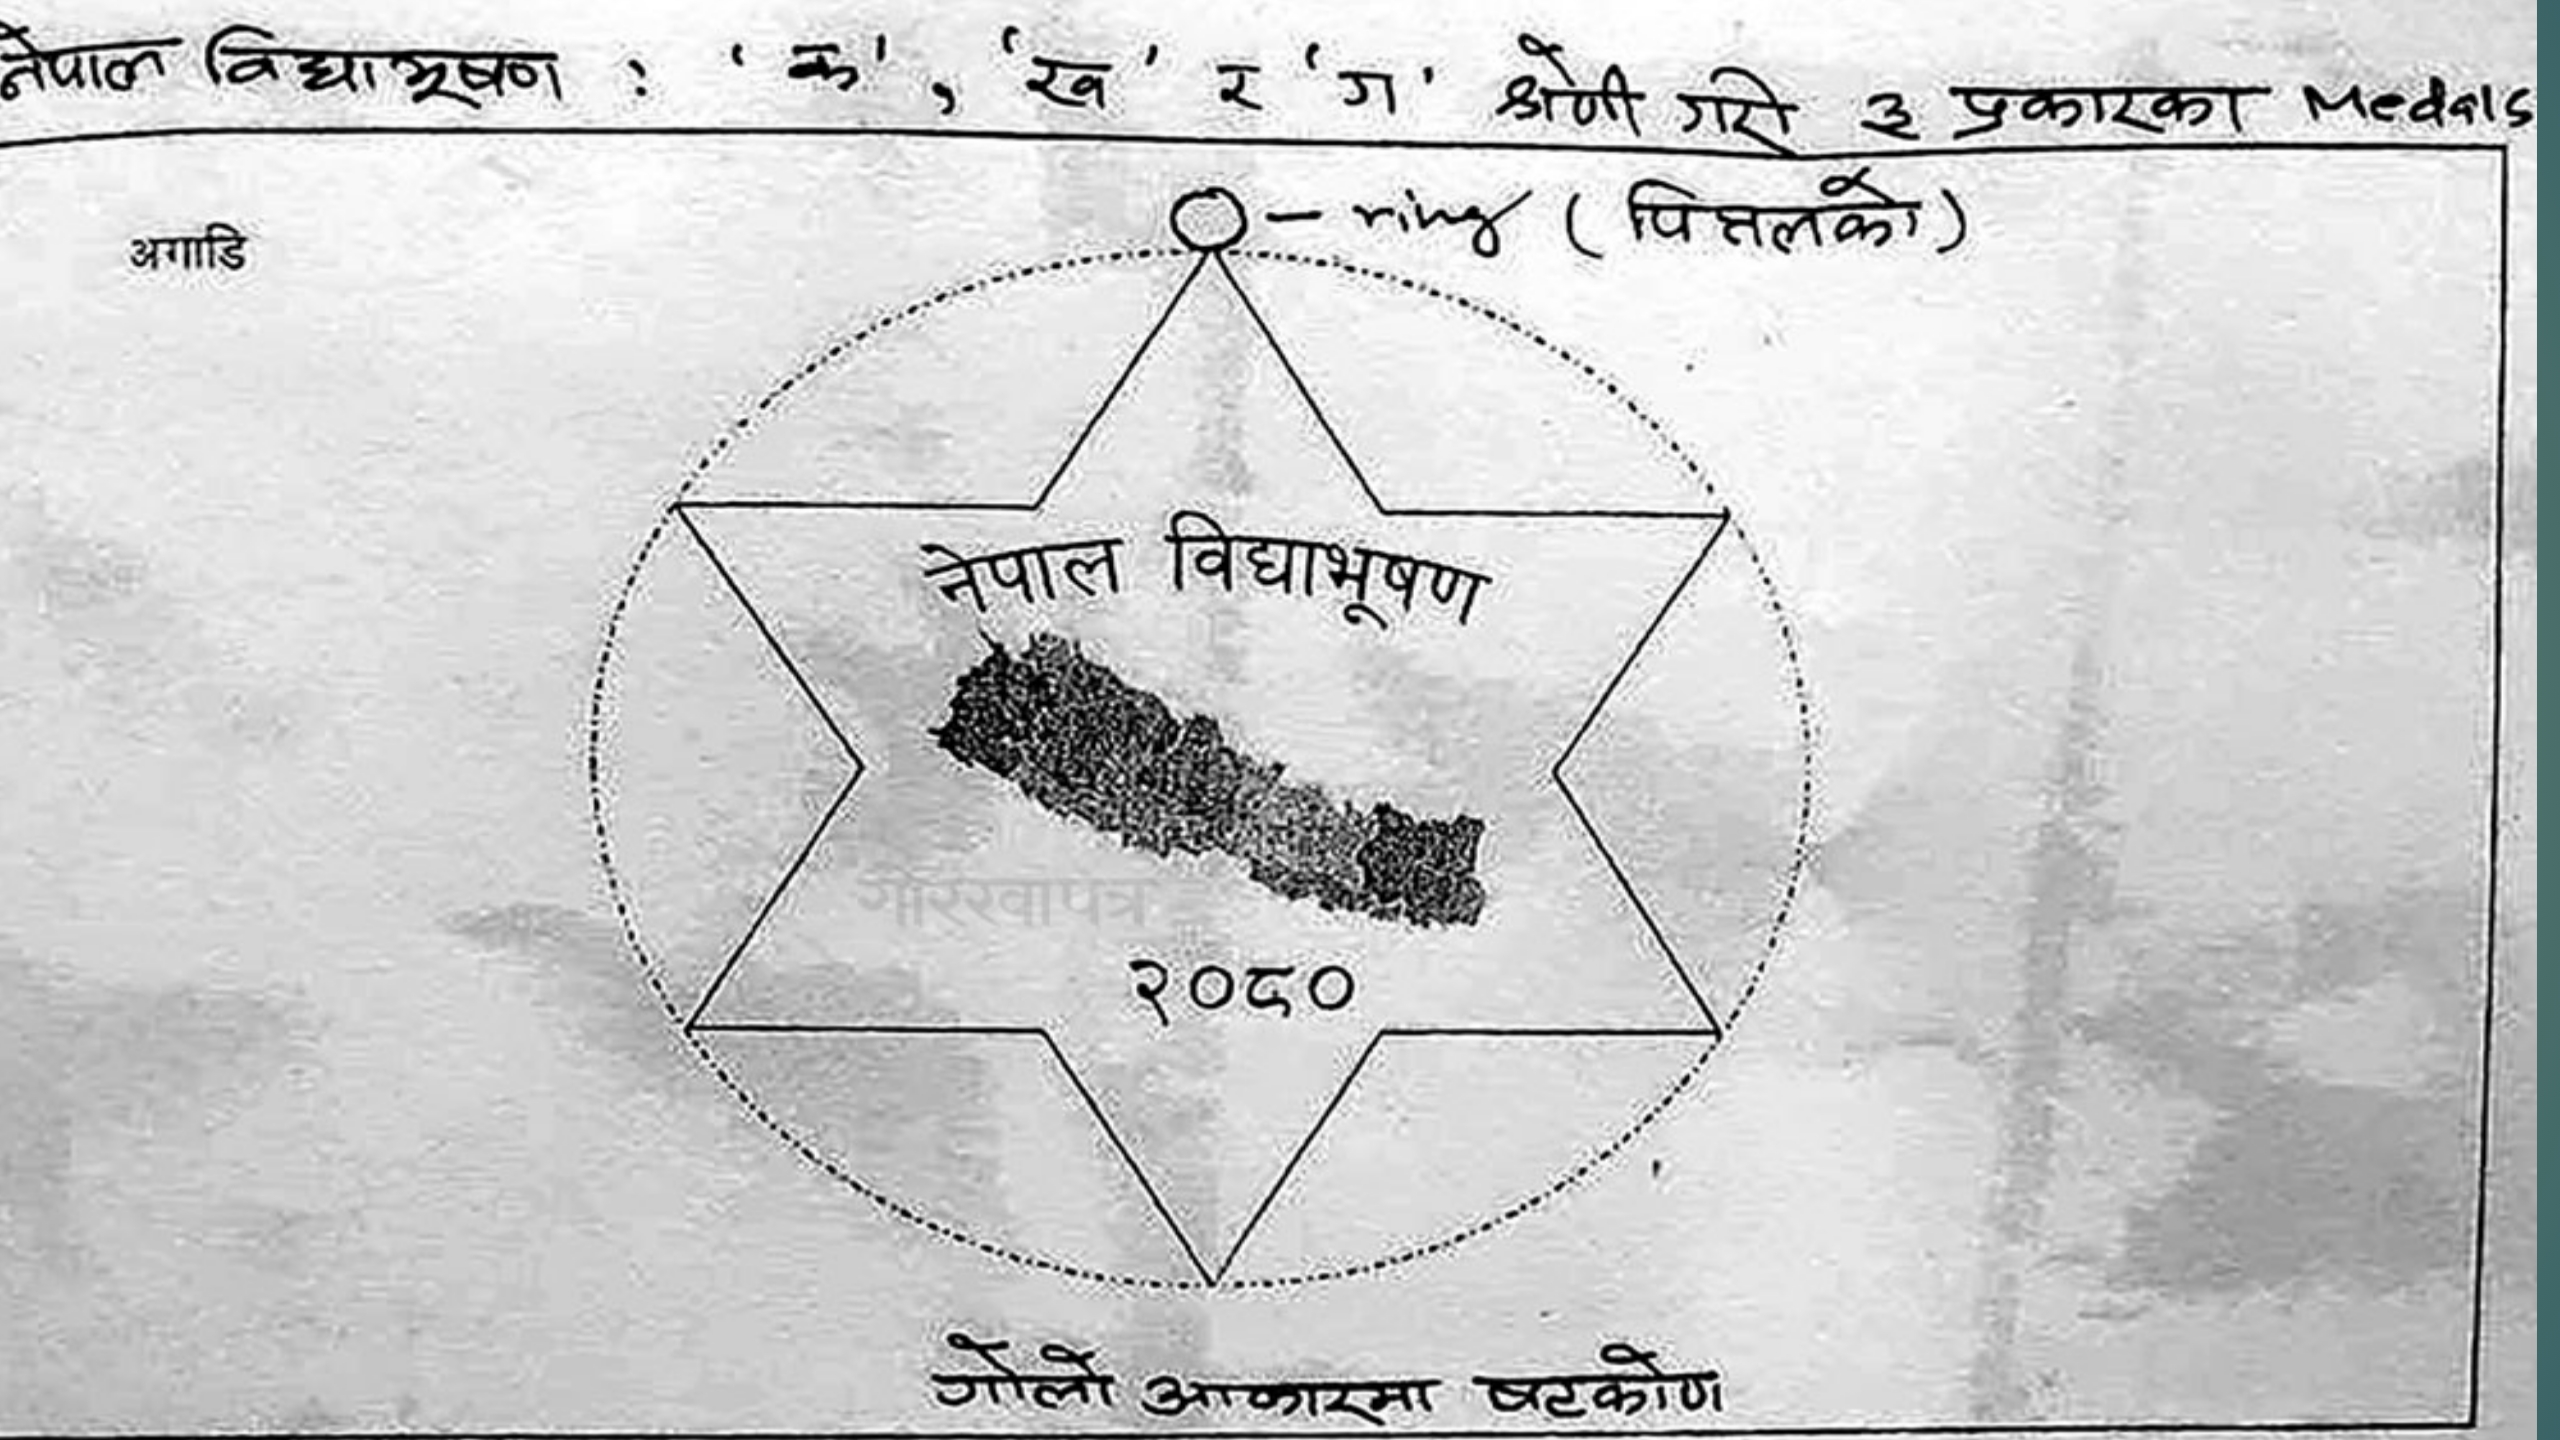 नेपाल विद्याभूषण : 'क', 'ख' र 'ग' श्रेणी गरी ३ प्रकारका Medals
- ring (पित्तलको)
अगाडि
नेपाल विद्याभूषण
गोरखापत्र
२०८०
गोलो आकारमा षटकोण